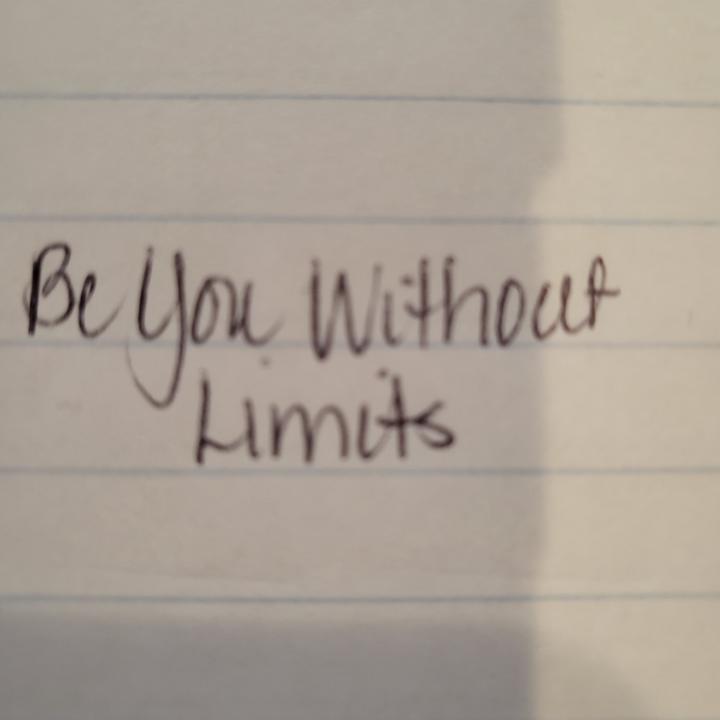 Be You Without
Limits